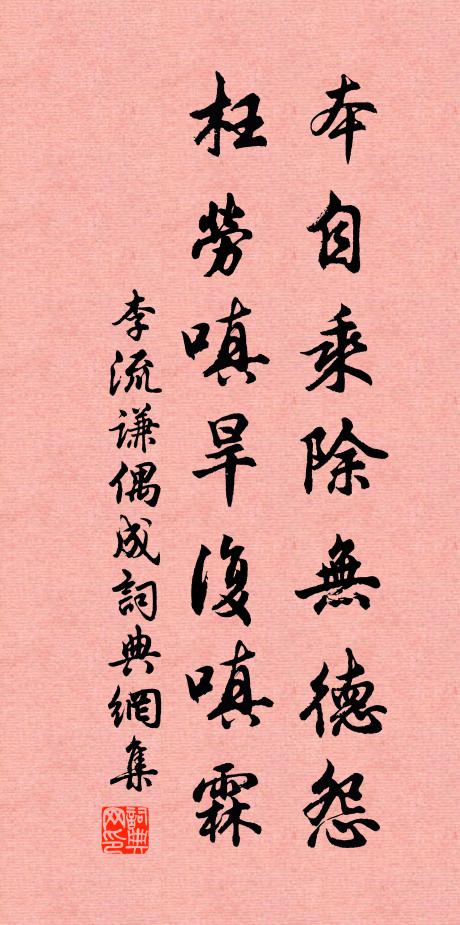 本自乘除無德怨
枉勞嗔旱復嗔霖
李流謙偶成詞典網集
詞典網印